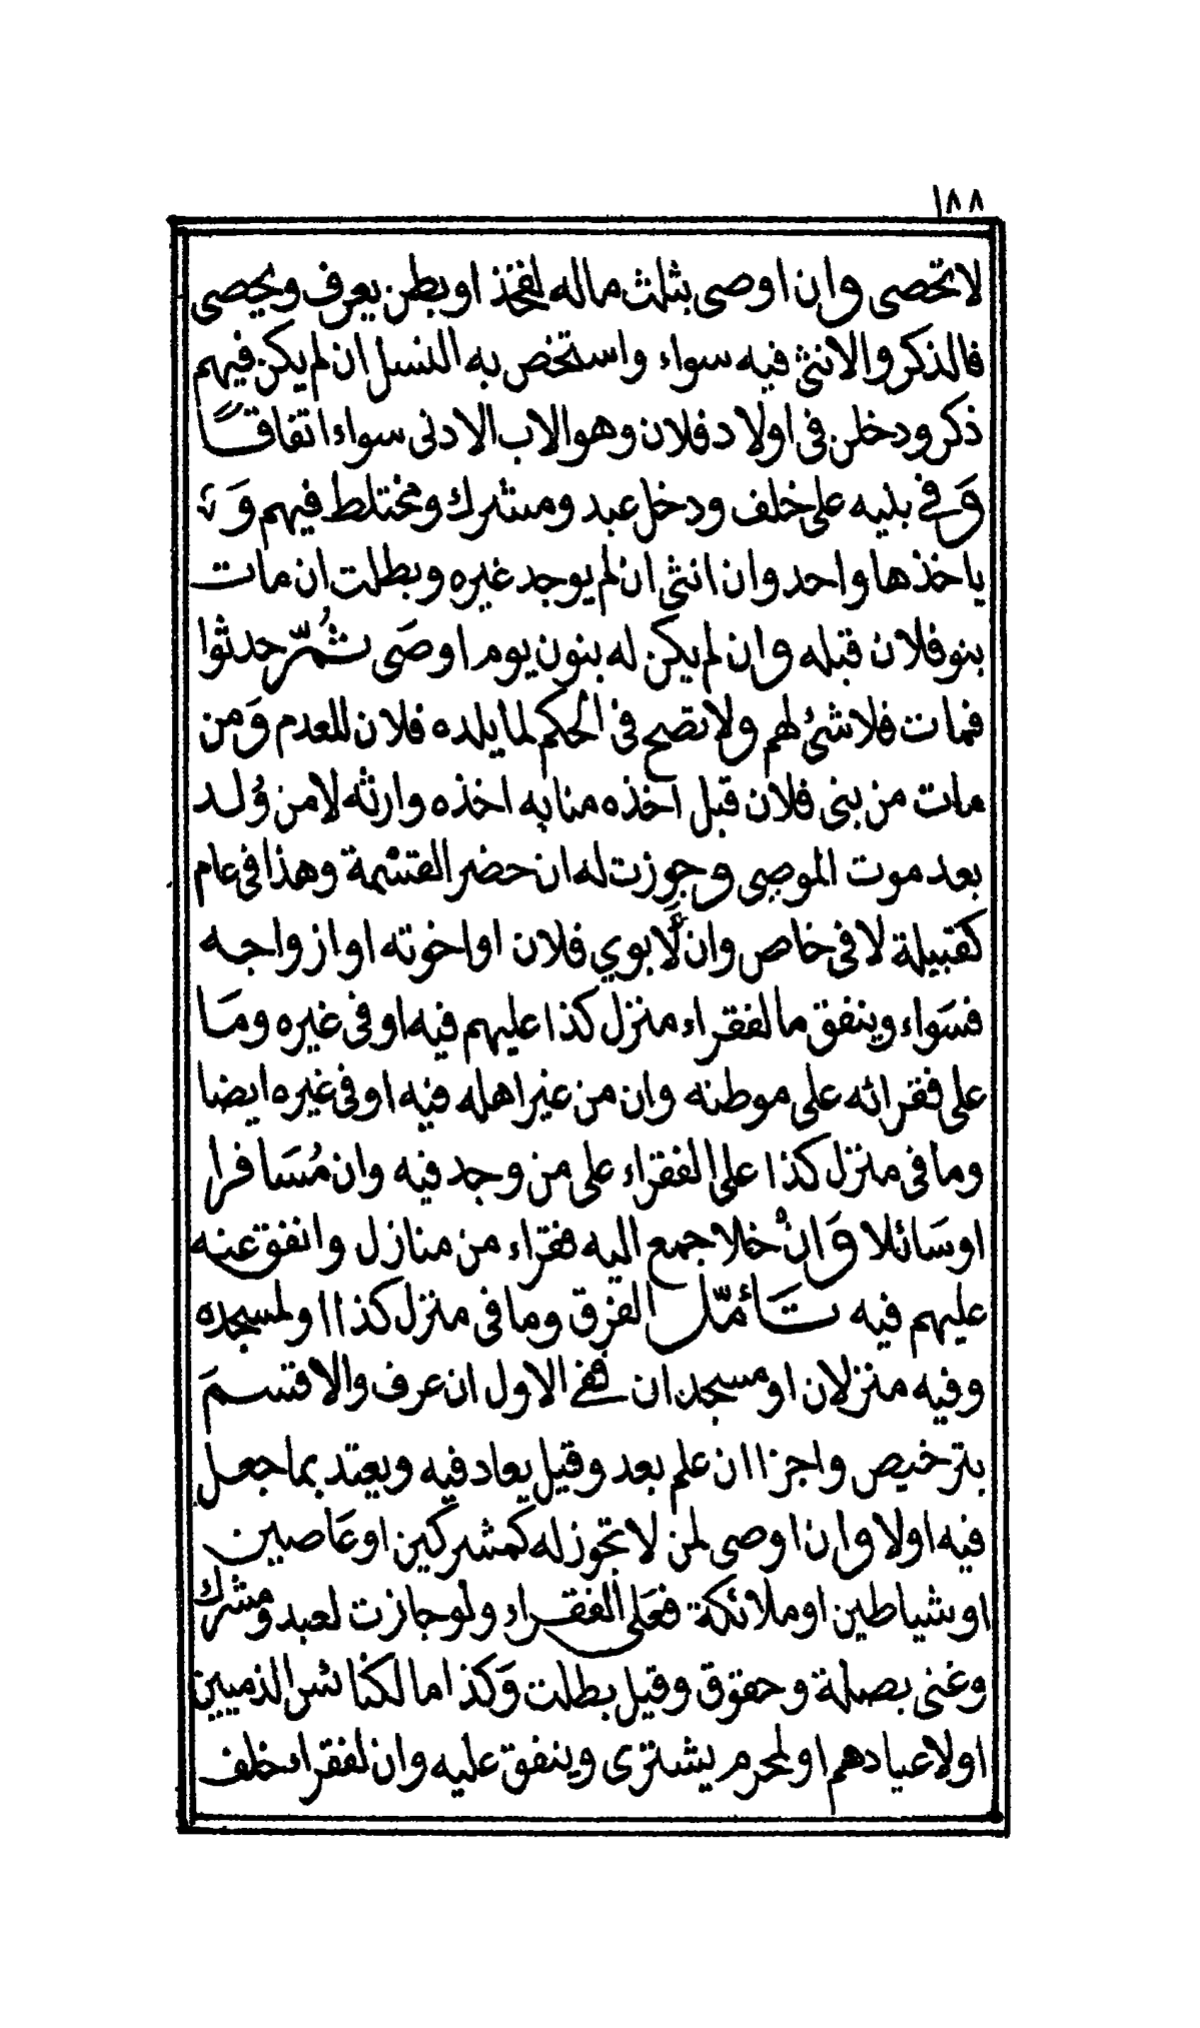 ١٨٨
لا تحصى وان اوصى بثلث ماله لفخذ او بطن يعرف ويحصى
فالذكر والانثى فيه سواء واستخص به النسل ان لم يكن فيهم
ذكر ودخلن فى اولاد فلان وهو الاب الادنى سواء اتفاقًا
وَفى بنيه على خلف ودخل عبد ومشرك ومختلط فيهم وَ
ياخذها واحد وان انثى ان لم يوجد غيره وبطلت ان مات
بنو فلان قبله وان لم يكن له بنون يوم اوصَى ثُمّ حدثوا
فمات فلا شئ لهم ولا تصح فى الحكم لما يلده فلان للعدم وَمن
مات من بنى فلان قبل اخذه منابه اخذه وارثه لا من وُلد
بعد موت الموصى وجوزت له ان حضر القسمة وهذا فى عام
كقبيلة لا فى خاص وان لابوي فلان او اخوته او ازواجه
فسَواء وينفق ما لفقراء منزل كذا عليهم فيه او فى غيره ومَا
على فقرائه على موطنه وان من غير اهله فيه او فى غيره ايضا
وما فى منزل كذا على الفقراء على من وجد فيه وان مُسَافرا
او سَائلا وَانْ خلا جمع اليه فقراء من منازل وانفق عنه
عليهم فيه تَأمّل الفرق وما فى منزل كذا او لمسجده
وفيه منزلان او مسجدان ففى الاول ان عرف والا قسمَ
بترخيص واجزا ان علم بعد وقيل يعاد فيه ويعتد بما جعل
فيه اولا وان اوصى لمن لا تجوز له كمشركين او عَاصين
او شياطين او ملائكة فعَلى الفقراء ولو جازت لعبد ومشرك
وغنى بصلة وحقوق وقيل بطلت وَكذا ما لكنائس الذميين
او لاعيادهم او لمحرم يشترى وينفق عليه وان لفقراء خلف